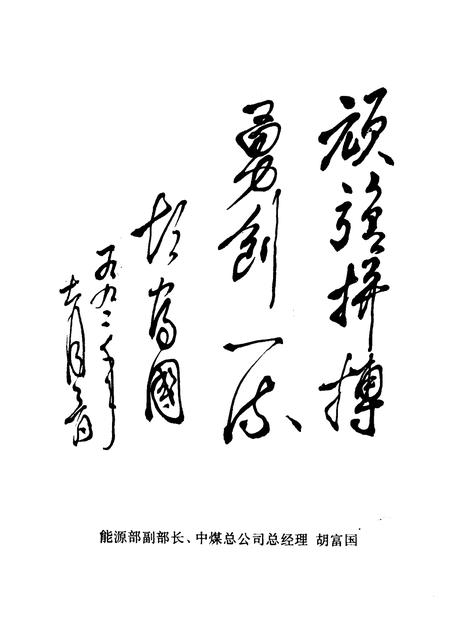 顽强拼搏
勇创一流
胡富國
一九九二年
十月
能源部副部长、中煤总公司总经理 胡富国